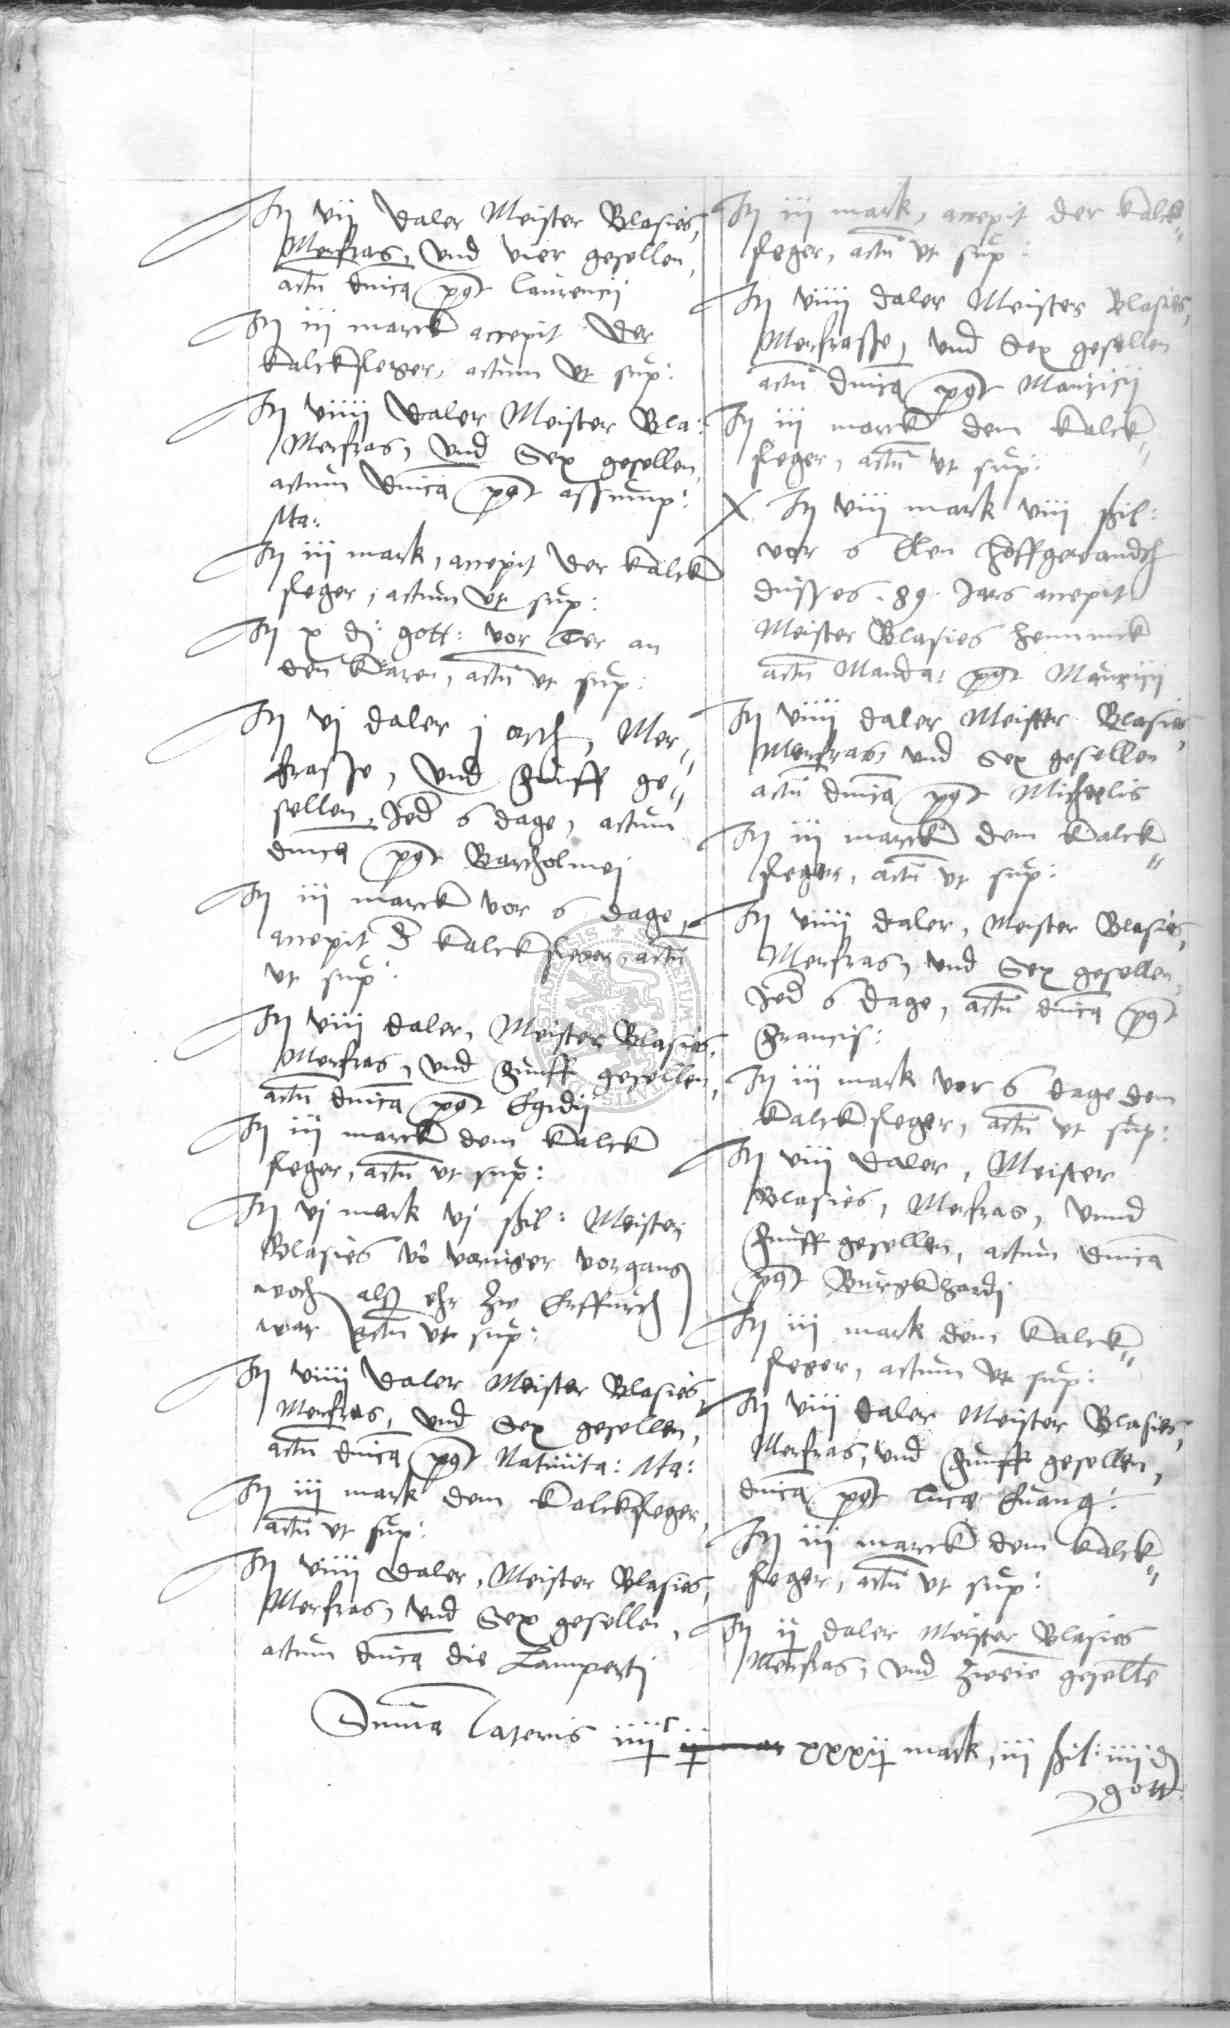 It vij daler Meister Blasies,
Merfras, vnd vier gesellen,
actū dnica post Laurencij
It iij marck accepit der
kalckfleger, actum vt sup:
It viiij daler Meister Bla:
Merfras, vnd Sex gesellen,
actum dnica post assump:
Ma:
It iij mark, accepit der kalck
fleger, actum vt sup:
It x dj: gott: vor Ter an
den karen, actū vt sup:
It vj daler j orth, Mer„
frasse, vnd Funff ge„
sellen, Jed 6 dage, actum
dnica post Bartholmej
It iij marck vor 6 dage,
accepit d kalckfleger, actū
vt sup:
It viij daler, Meister Blasies,
Merfras, vnd Funff gesellen,
actū dnica post Egidij
It iij marck dem kalck
fleger, actū vt sup:
It vj mark vj ßil: Meister
Blasies vō voriger vorgang
woch als ehr zw Erffurdt
war actū vt sup:
It viiij daler Meister Blasies,
Merfras, vnd Sex gesellen,
actū dnica post Natiuita: Ma:
It iij mark dem kalckfleger,
actū vt sup:
It viiij daler, Meister Blasies,
Merfras, vnd Sex gesellen,
actum dnica die Lampertj
It iij mark, accepit der kalck„
fleger, actū vt sup:
It viiij daler Meister Blasies,
Merfrasse, vnd Sex gesellen
actū dnica post Mauricij
It iij marck dem kalck„
fleger, actū vt sup:
X It viij mark viij ßil:
vor 6 Elen hoffgewandth
dusses .89. Jars accepit
Meister Blasies hennick
actū Manda: post Mauricij
It viiij daler Meister Blasies,
Merfras, vnd Sex gesellen
actū dnica post Michaelis
It iij marck dem kalck„
fleger, actū vt sup:
It viiij daler, Meister Blasies,
Merfras, vnd Sex gesellen,
Jed 6 dage, actū dnica post
Francis:
It iij mark vor 6 dage dem
kalckfleger, actū vt sup:
It viij daler, Meister
Blasies, Merfras, vnnd
Funff gesellen, actum dnica
post Burgkhardj
It iij mark dem kalck„
fleger, actum vt sup:
It viij daler Meister Blasies,
Merfras, vnd Funff gesellen,
dnica post Luce Euang:
It iij marck dem kalck„
fleger, actū vt sup:
It ij daler Meister Blasies
Merfras, vnd zweie geselle
Suma Lateris iiijc xxxij mark, iij ßil: iiij d
gott: